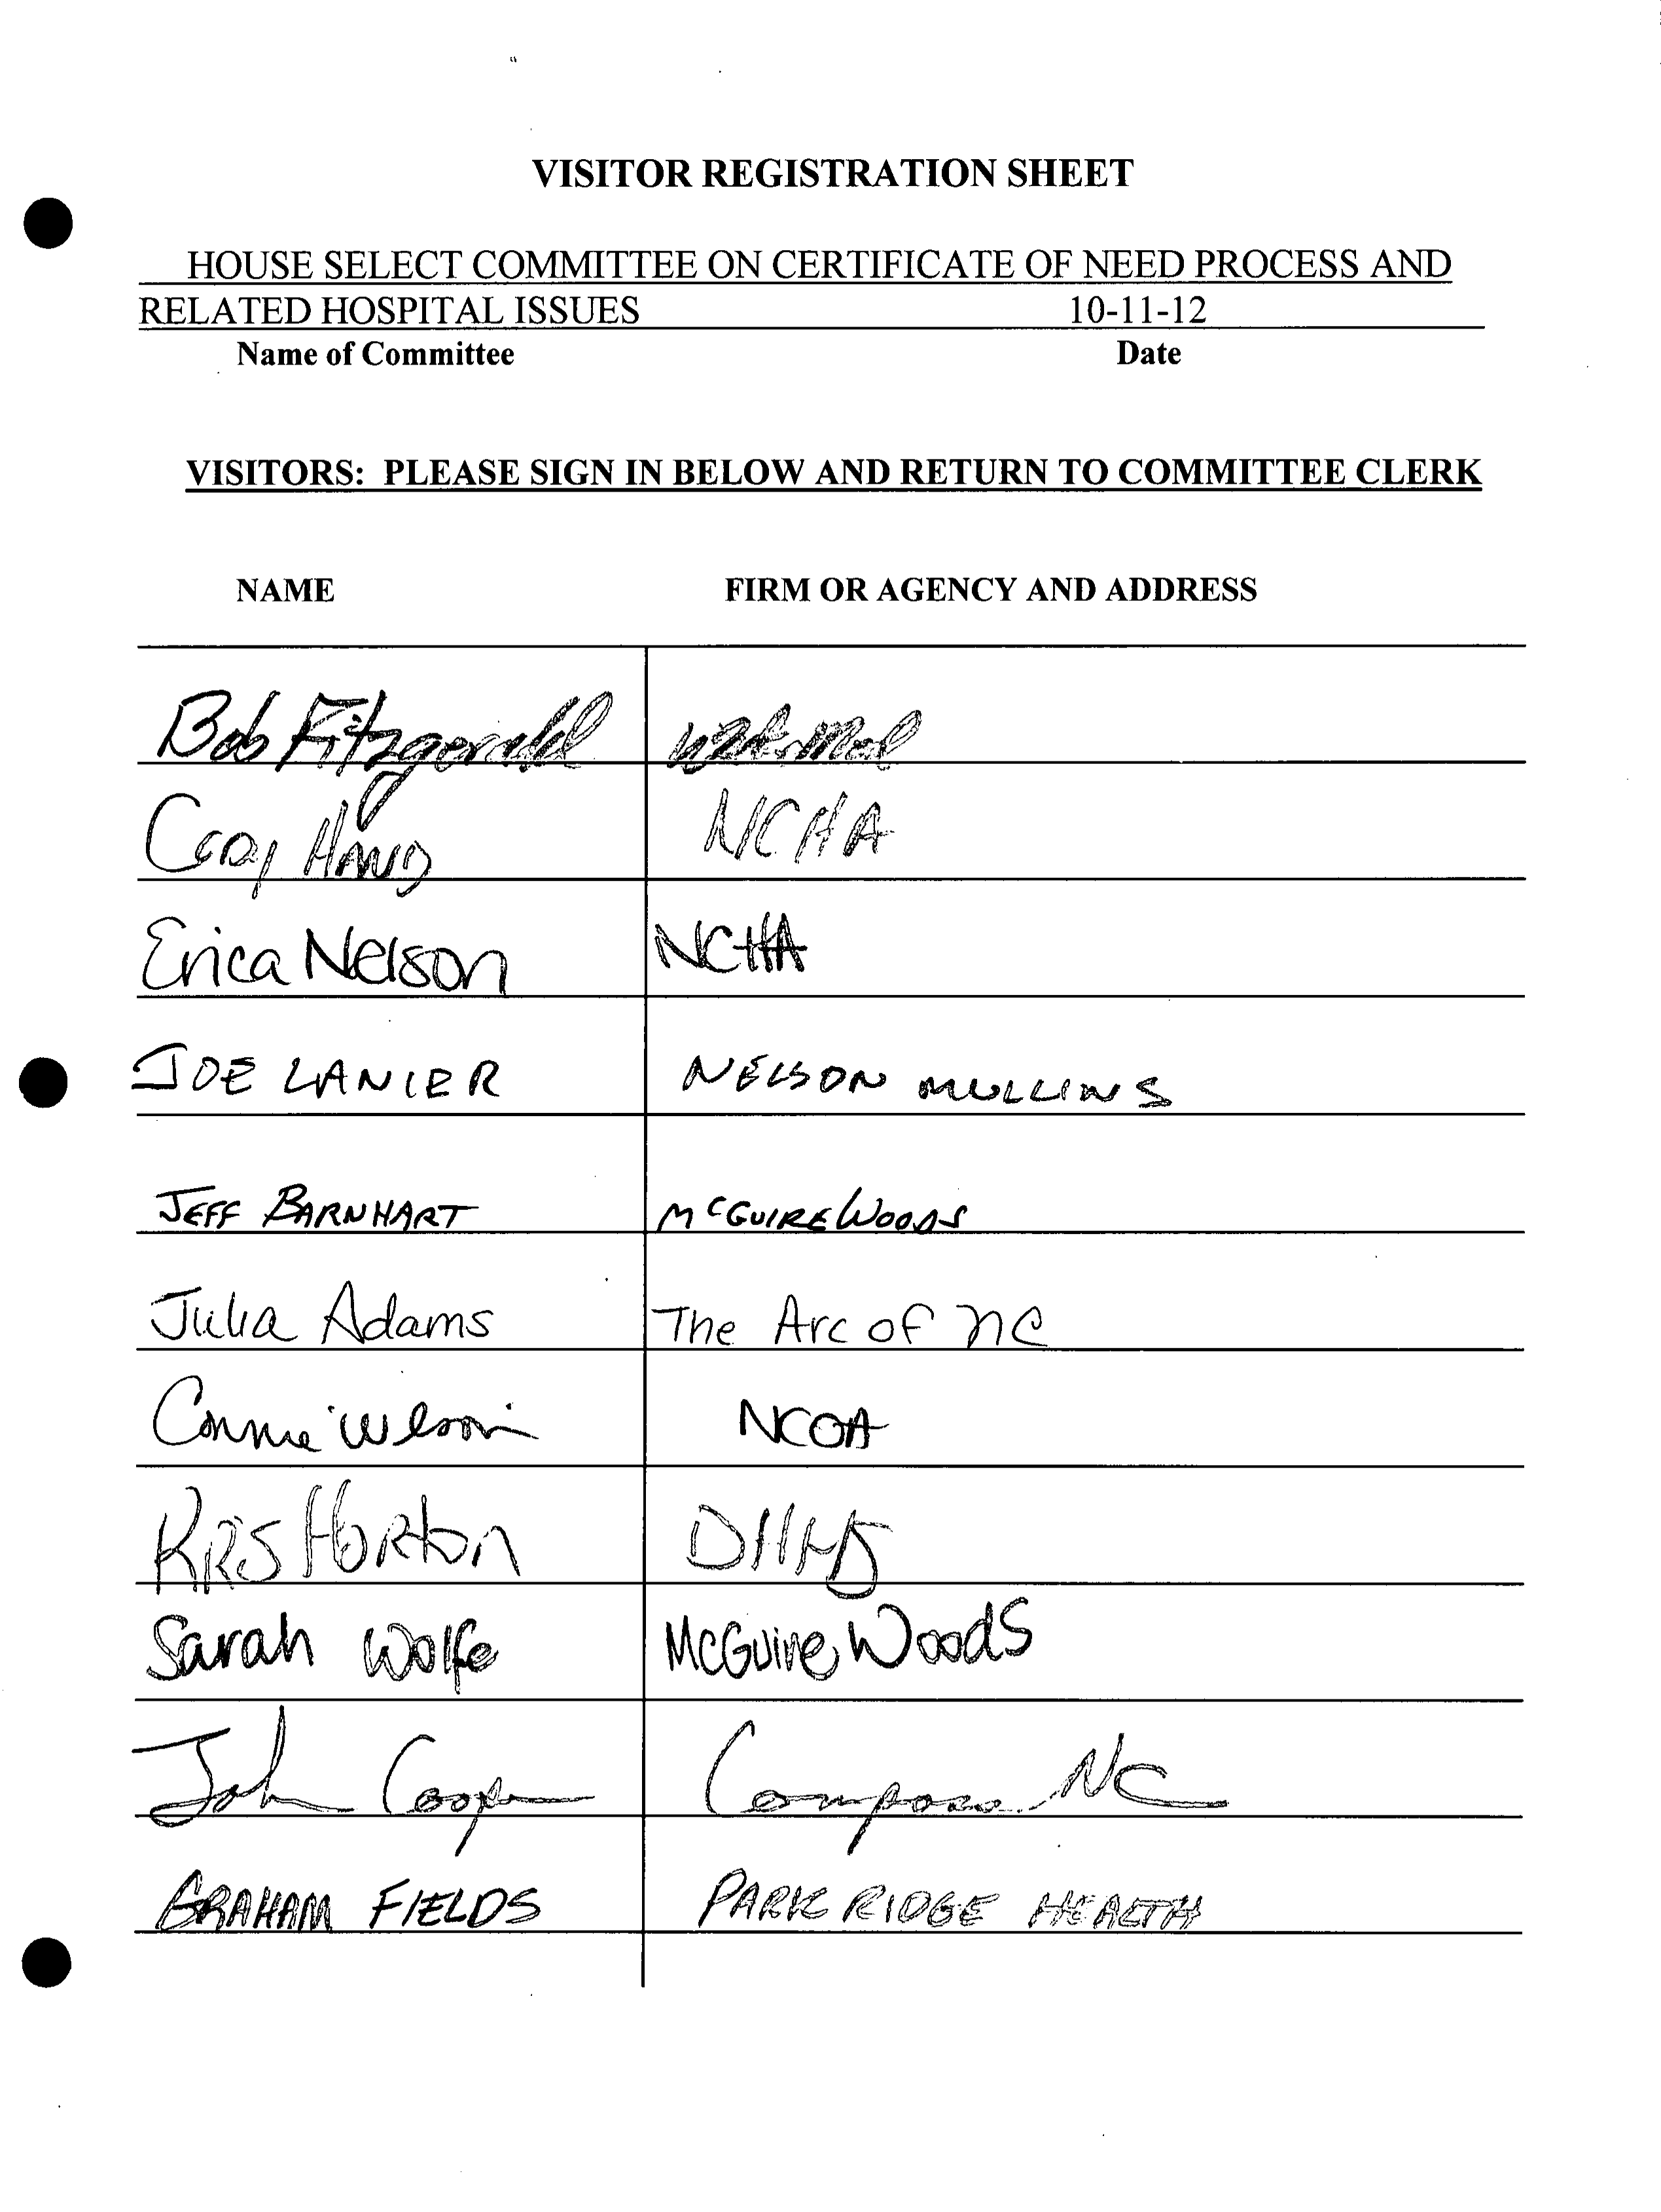 VISITOR REGISTRATION SHEET
HOUSE SELECT COMMITTEE ON CERTIFICATE OF NEED PROCESS AND
RELATED HOSPITAL ISSUES 10-11-12
Name of Committee Date
VISITORS: PLEASE SIGN IN BELOW AND RETURN TO COMMITTEE CLERK
NAME FIRM OR AGENCY AND ADDRESS
Bob Fitzgerald
NCHA
Erica Nelson NCHA
JOE LANIER NELSON MULLINS
JEFF BARNHART MCGUIREWOODS
Julia Adams The Arc of NC
Connie Wilson NCOA
KRIS Horton DHHS
Sarah Wolfe McGuireWoods
John Cooper NC
GRAHAM FIELDS PARK RIDGE HEALTH